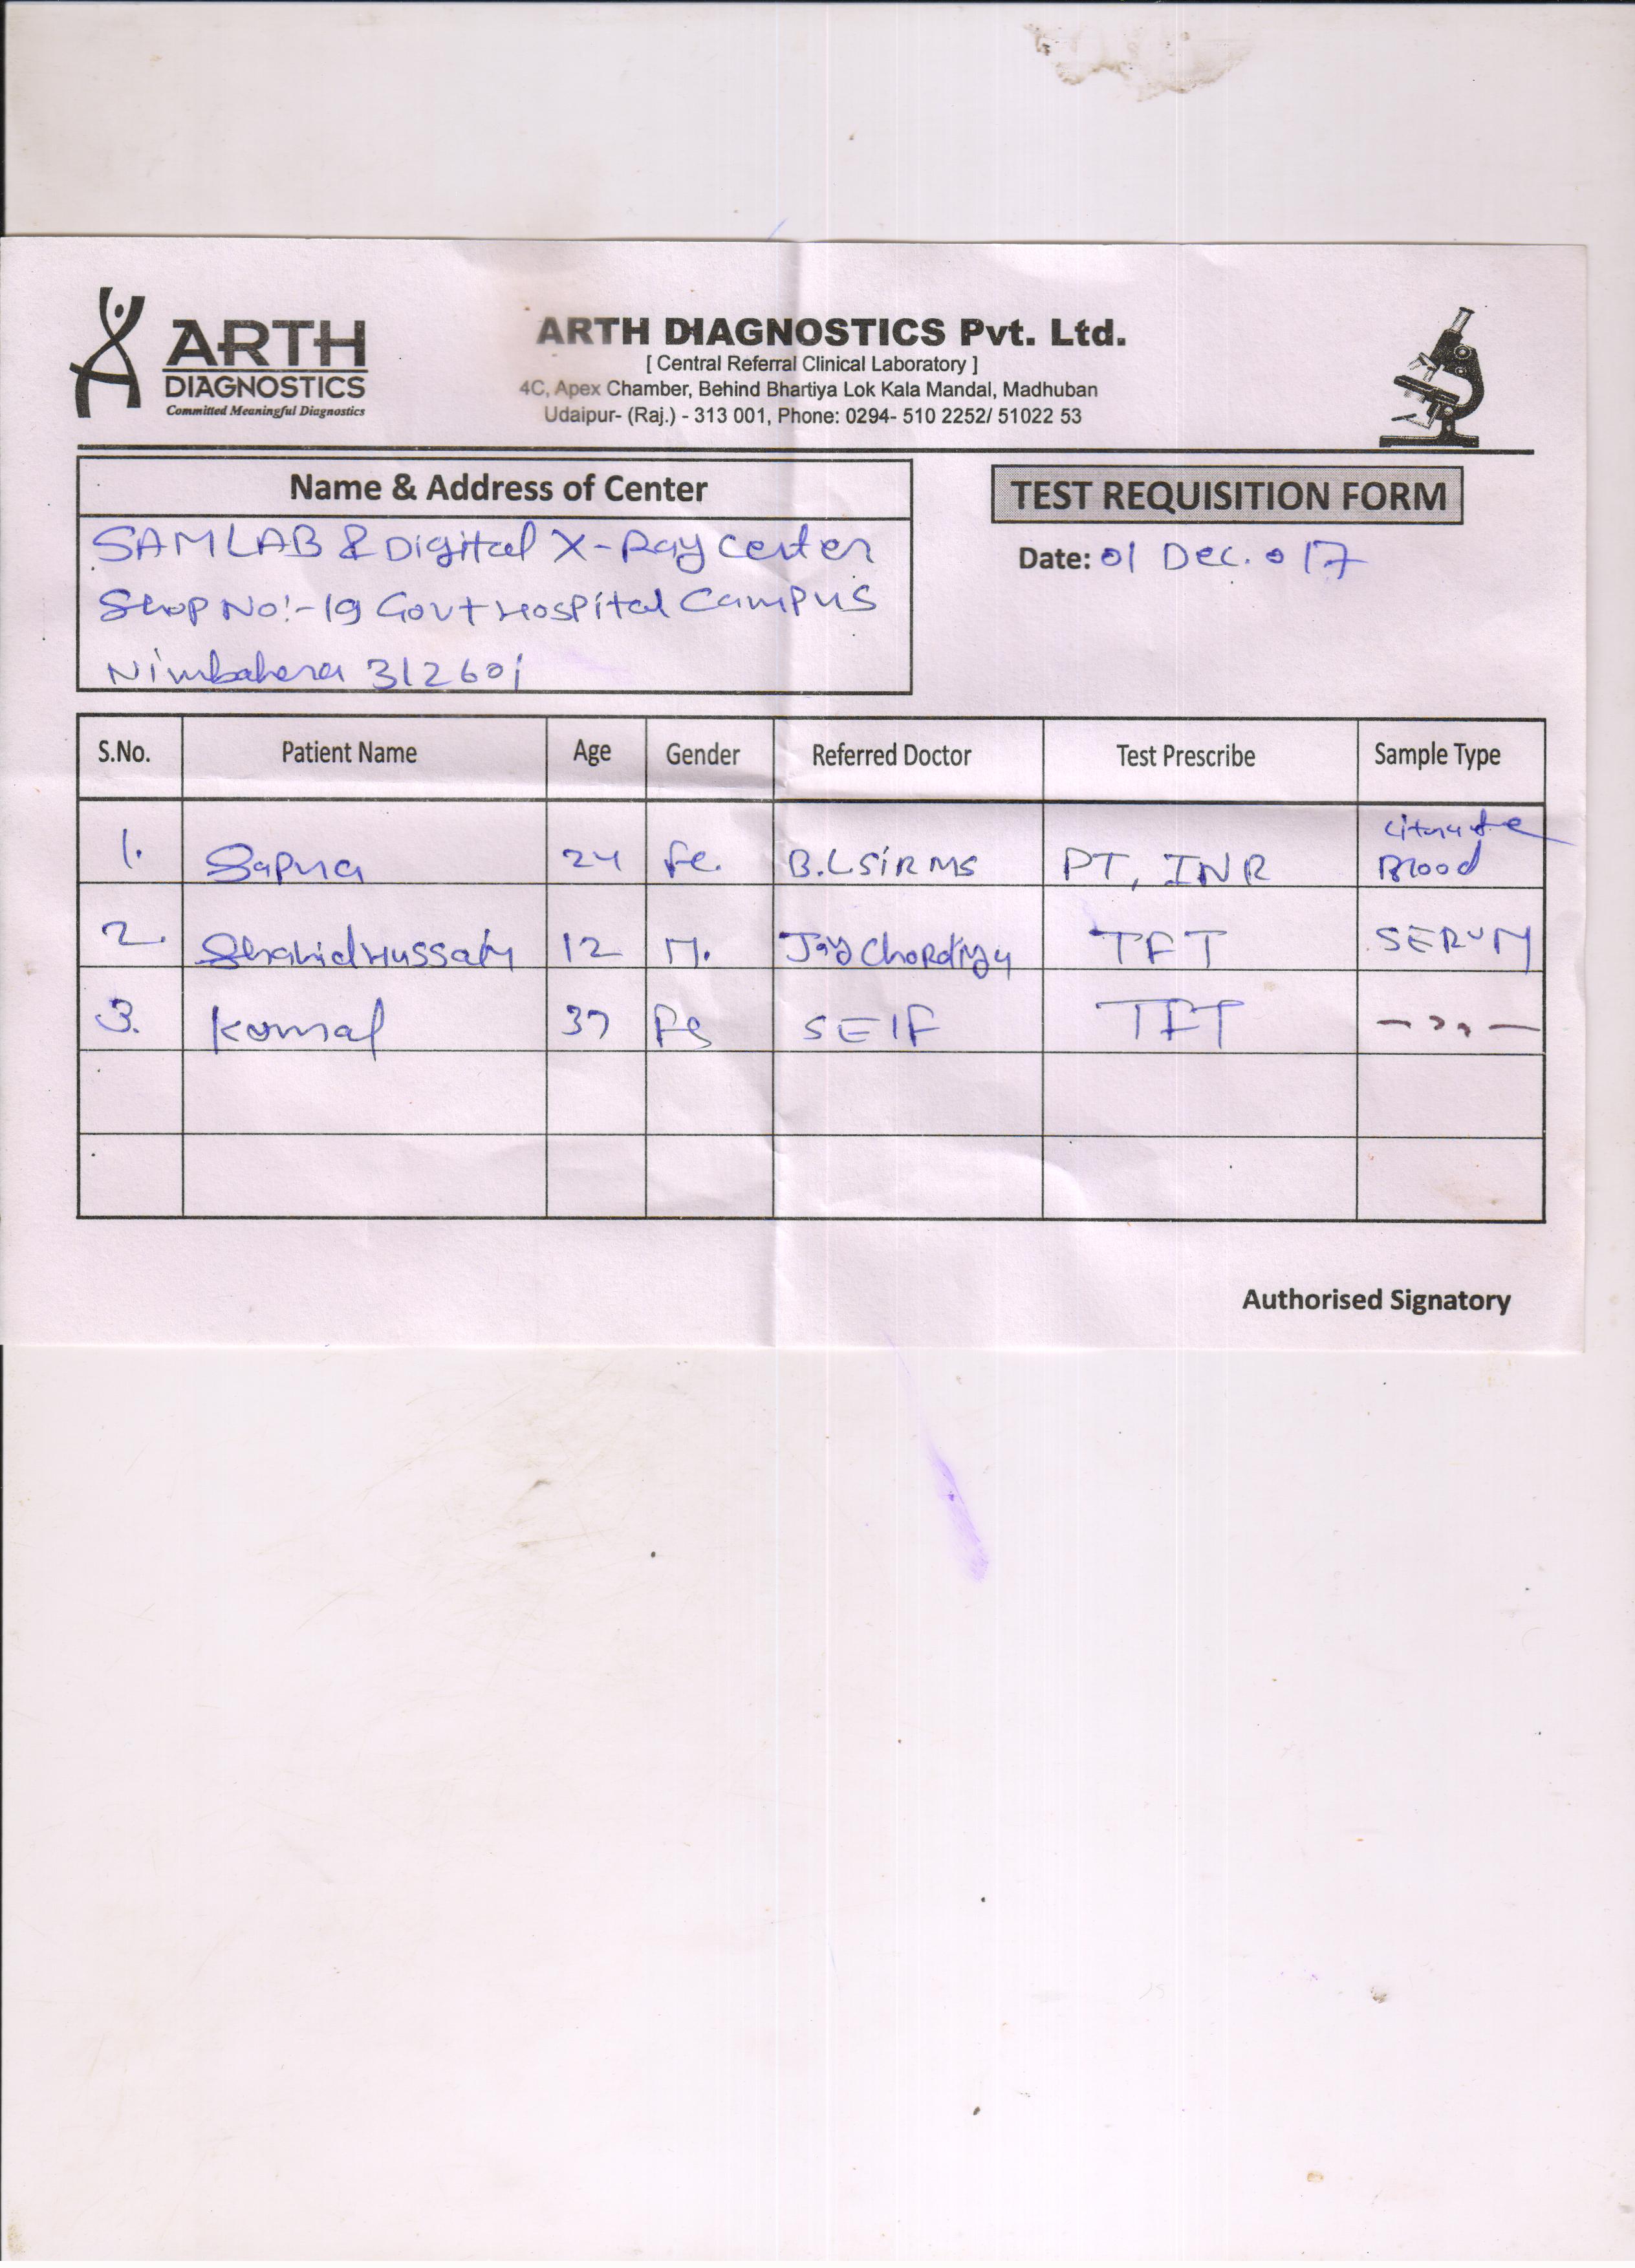 ARTH
DIAGNOSTICS
Committed Meaningful Diagnostics
ARTH DIAGNOSTICS Pvt. Ltd.
[ Central Referral Clinical Laboratory ]
4C, Apex Chamber, Behind Bhartiya Lok Kala Mandal, Madhuban
Udaipur- (Raj.) - 313 001, Phone: 0294- 510 2252/ 51022 53
Name & Address of Center
SAM LAB & Digital X-Ray Center
Shop No:-19 Govt Hospital Campus
Nimbahera 312601
TEST REQUISITION FORM
Date: 01 Dec. 017
S.No. Patient Name Age Gender Referred Doctor Test Prescribe Sample Type
1. Sapna 24 Fe. B.L SIRMS PT, INR Citrate Blood
2. Shahid Hussain 12 M. Jay Chordiya TFT SERUM
3. Komal 37 Fe SElF TFT —,,—
Authorised Signatory